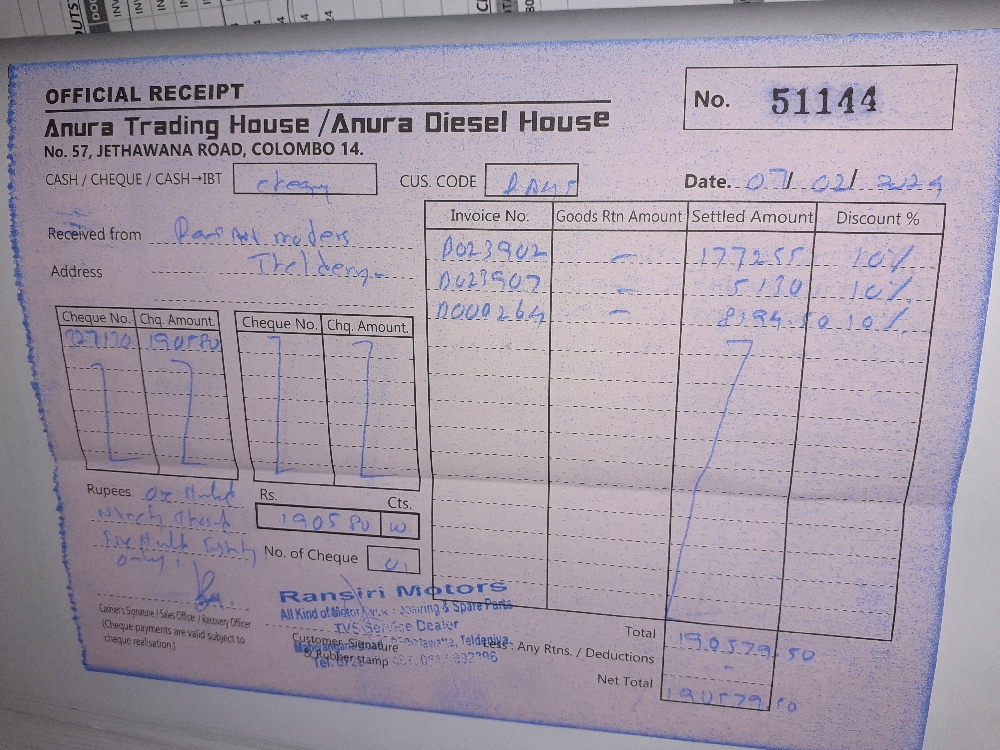 OFFICIAL RECEIPT
No. 51144
Anura Trading House / Anura Diesel House
No. 57, JETHAWANA ROAD, COLOMBO 14.
CASH / CHEQUE / CASH→IBT
CUS. CODE
Date. 07/ 02/ 2024
Received from
Address
Invoice No. Goods Rtn Amount Settled Amount Discount %
D023902 – 177255 10%
D023907 – 5130 10%
D000264 – 8194.50 10%
Cheque No. Chq. Amount. Cheque No. Chq. Amount.
327130 190580
Rupees. One
Rs. Cts.
190580
only.
No. of Cheque 01
Cashier's Signature / Sales Officer / Recovery Officer
(Cheque payments are valid subject to
cheque realisation.)
Ransiri Motors
All Kind of Motor & Spare Parts
TVS Service Dealer
Customer Signature
& Rubber stamp
Total 190579.50
Less : Any Rtns. / Deductions -
Net Total 190579.50